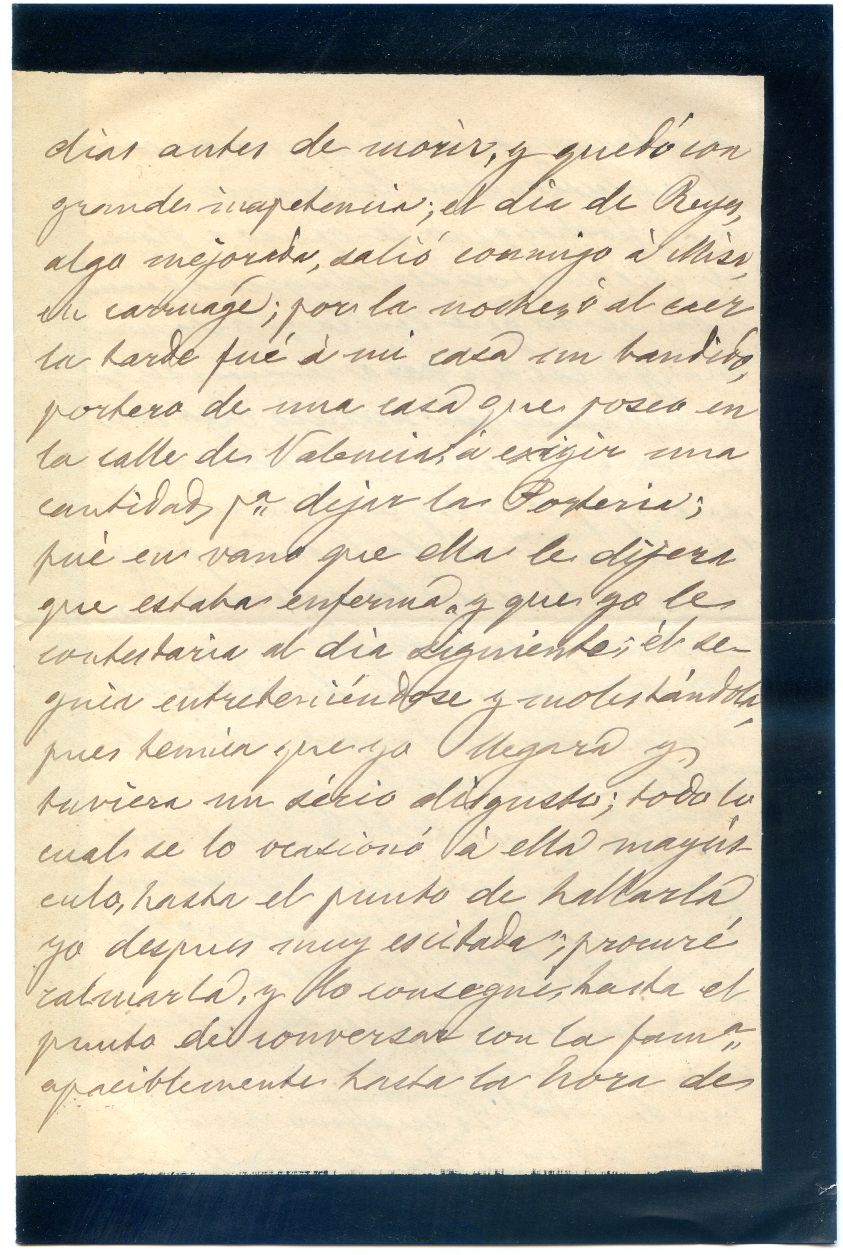 dias antes de morir, y quedó con
grande inapetencia; el dia de Reyes,
algo mejorada, salió conmigo à Misa,
en carruage; por la noche, ó al caer
la tarde fué à mi casa un bandido,
portero de una casa que poseo en
la calle de Valencia, à exigir una
cantidad pª dejar la Porteria;
fué en vano que ella le dijera
que estaba enferma, y que yo le
contestaria al dia siguiente; él se-
guia entreteniéndose y molestándola,
pues temia que yo llegara y
tuviera un sério disgusto; todo lo
cual se lo ocasionó à ella mayús-
culo, hasta el punto de hallarla
yo despues muy escitada; procuré
calmarla, y lo conseguí, hasta el
punto de conversar con la famª
apaciblemente hasta la hora de